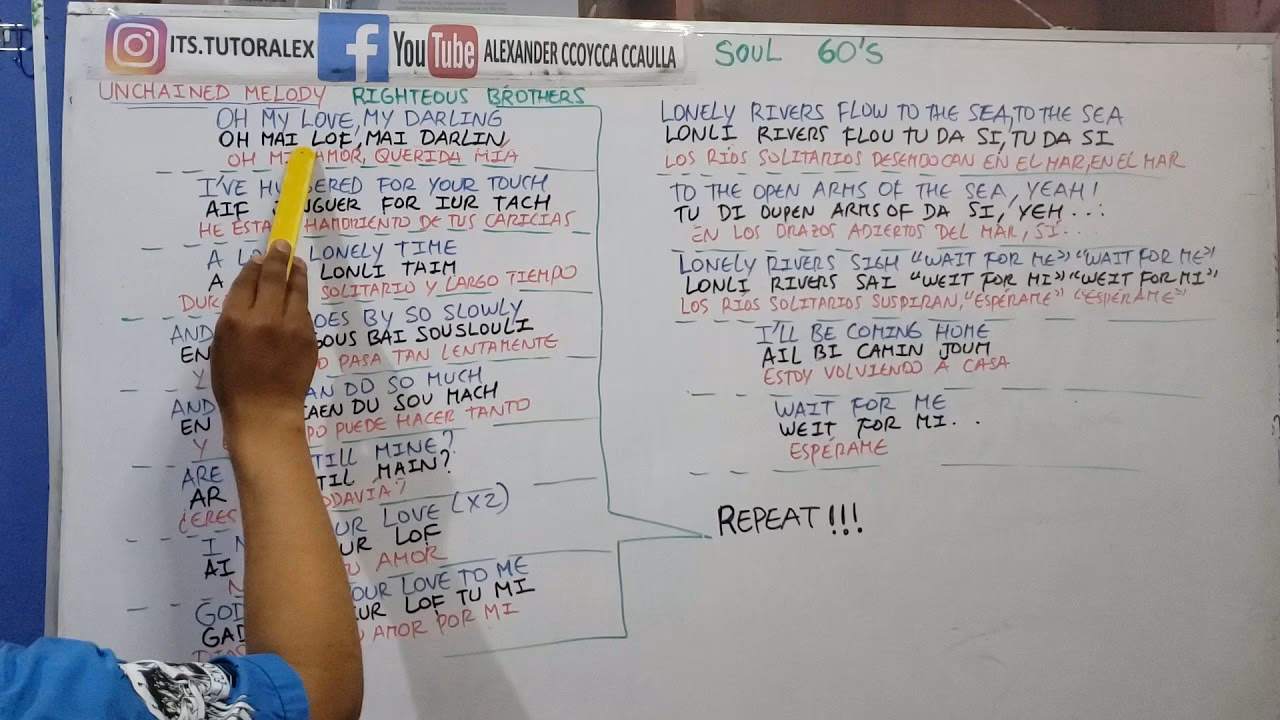 ITS.TUTORALEX
YouTube ALEXANDER CCOYCCA CCAULLA
SOUL 60'S
UNCHAINED MELODY RIGHTEOUS BROTHERS
OH MY LOVE, MY DARLING
OH MAI LOF, MAI DARLIN
OH MI AMOR, QUERIDA MIA
I'VE FOR YOUR TOUCH
AIF FOR IUR TACH
HE HAMBRIENTO DE TUS CARICIAS
A LONELY TIME
A LONLI TAIM
SOLITARIO Y LARGO TIEMPO
AND BY SO SLOWLY
EN BAI SOUSLOULI
Y PASA TAN LENTAMENTE
AND DO SO MUCH
EN DU SOU MACH
Y PUEDE HACER TANTO
ARE MINE?
AR MAIN?
¿ERES
I LOVE (X2)
AI LOF
AMOR
LOVE TO ME
LOF TU MI
AMOR POR MI
LONELY RIVERS FLOW TO THE SEA, TO THE SEA
LONLI RIVERS FLOU TU DA SI, TU DA SI
LOS RIOS SOLITARIOS DESEMBOCAN EN EL MAR, EN EL MAR
TO THE OPEN ARMS OF THE SEA, YEAH!
TU DI OUPEN ARMS OF DA SI, YEH...
EN LOS BRAZOS ABIERTOS DEL MAR, SÍ...
LONELY RIVERS SIGH "WAIT FOR ME" "WAIT FOR ME"
LONLI RIVERS SAI "WEIT FOR MI" "WEIT FOR MI"
LOS RIOS SOLITARIOS SUSPIRAN, "ESPÉRAME" "ESPÉRAME"
I'LL BE COMING HOME
AIL BI CAMIN JOUM
ESTOY VOLVIENDO A CASA
WAIT FOR ME
WEIT FOR MI..
ESPÉRAME
REPEAT!!!